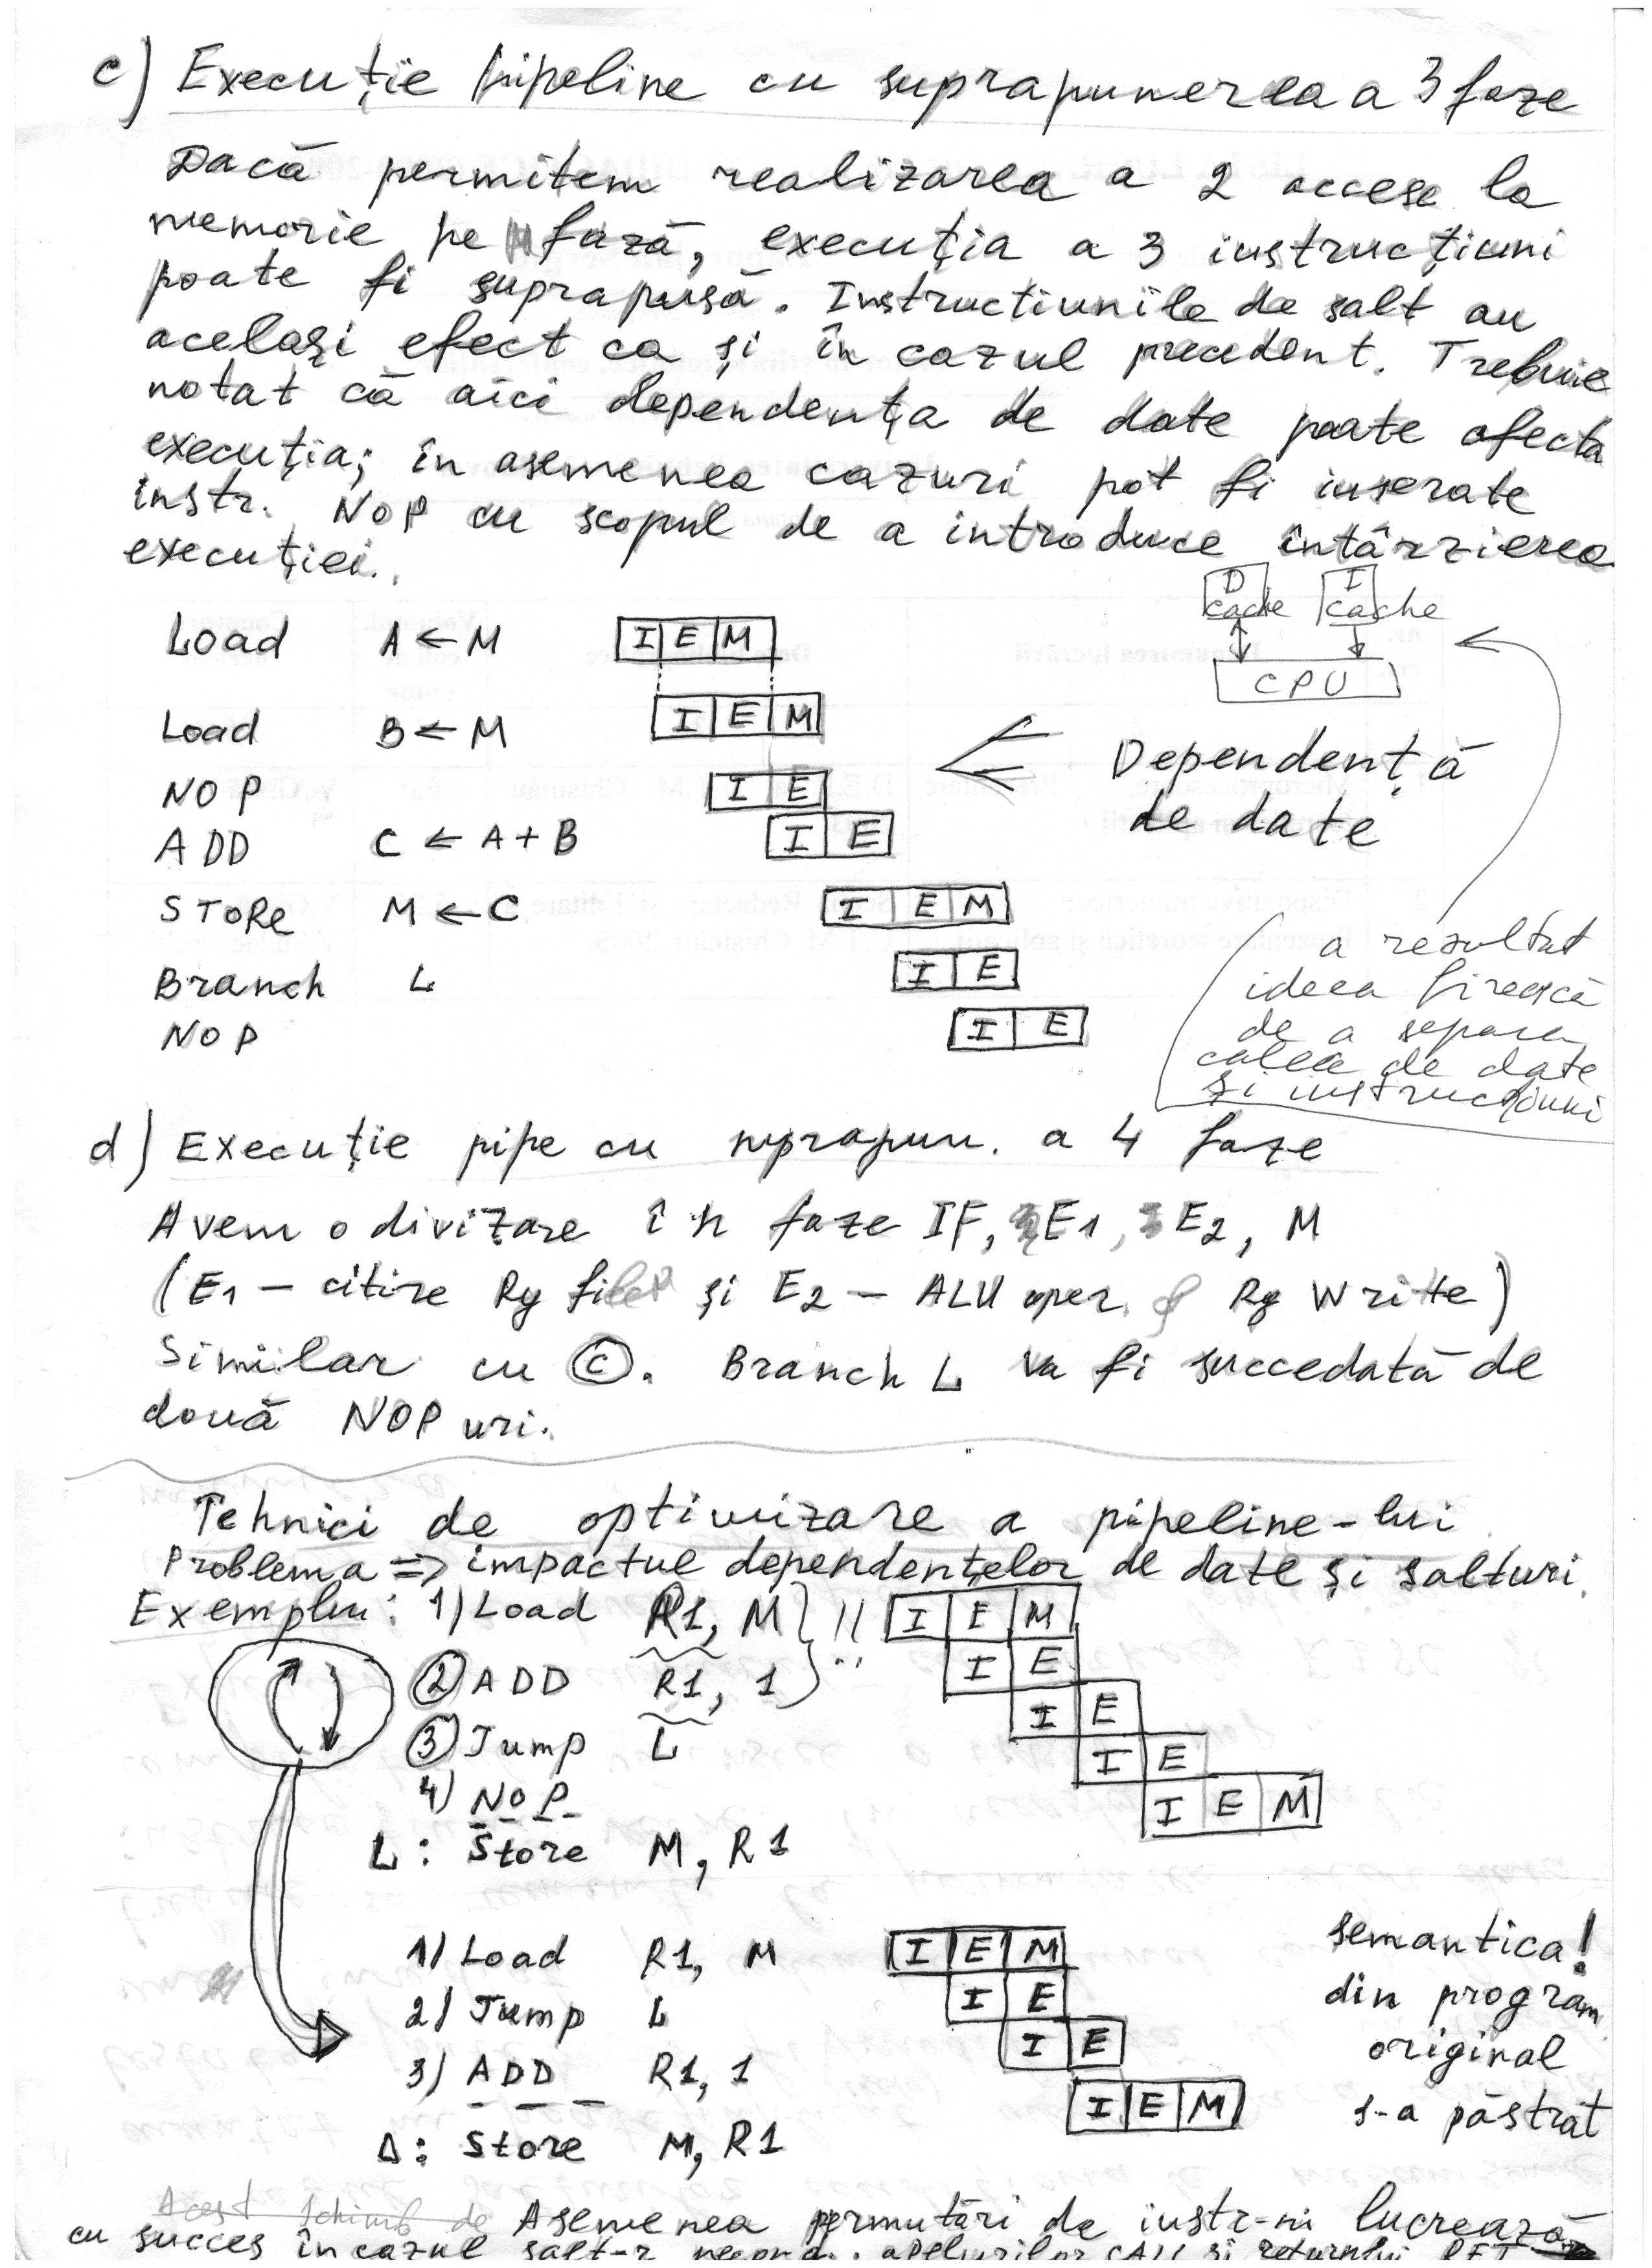 c) Execuție pipeline cu suprapunerea a 3 faze
Dacă permitem realizarea a 2 accese la
memorie pe fază, execuția a 3 instrucțiuni
poate fi suprapusă. Instructiunile de salt au
același efect ca și în cazul precedent. Trebuie
notat că aici dependența de date poate afecta
execuția; în asemenea cazuri pot fi inserate
instr. NOP cu scopul de a introduce întârzierea
execuției.
D cache I cache
CPU
Load A ← M I E M
Load B ← M I E M
NOP I E
Dependență
de date
ADD C ← A + B I E
STORe M ← C I E M
Branch L I E
NOP I E
a rezultat
ideea firească
de a separa
calea de date
și instrucțiuni
d) Execuție pipe cu suprapun. a 4 faze
Avem o divizare în faze IF, E1, E2, M
(E1 – citire Rg file și E2 – ALU oper. Rg Write)
Similar cu ©. Branch L va fi succedată de
două NOP uri.
Tehnici de optimizare a pipeline-lui
Problema => impactul dependențelor de date și salturi.
Exemplu: 1) Load R1, M !! I E M
② ADD R1, 1 I E
③ Jump L I E
4) NOP I E
L: Store M, R1 I E M
1) Load R1, M I E M
2) Jump L I E
3) ADD R1, 1 I E
Δ: Store M, R1 I E M
semantica!
din program
original
s-a păstrat
Acest schimb de Asemenea permutări de instr-ni lucrează
cu succes în cazul salt-r apelurilor CALL și returnului RET